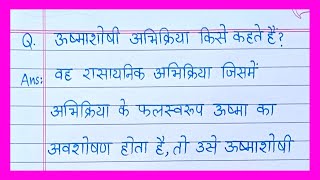 Q. ऊष्माशोषी अभिक्रिया किसे कहते हैं?
Ans: वह रासायनिक अभिक्रिया जिसमें
अभिक्रिया के फलस्वरूप ऊष्मा का
अवशोषण होता है, तो उसे ऊष्माशोषी